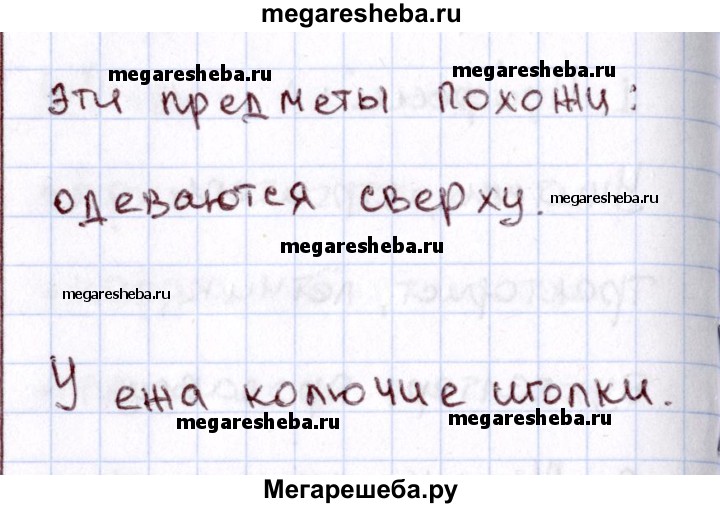 megaresheba.ru
megaresheba.ru megaresheba.ru
эти предметы похожи:
одеваются сверху.
megaresheba.ru
megaresheba.ru
megaresheba.ru
У ежа колючие иголки.
megaresheba.ru megaresheba.ru
Мегарешеба.ру